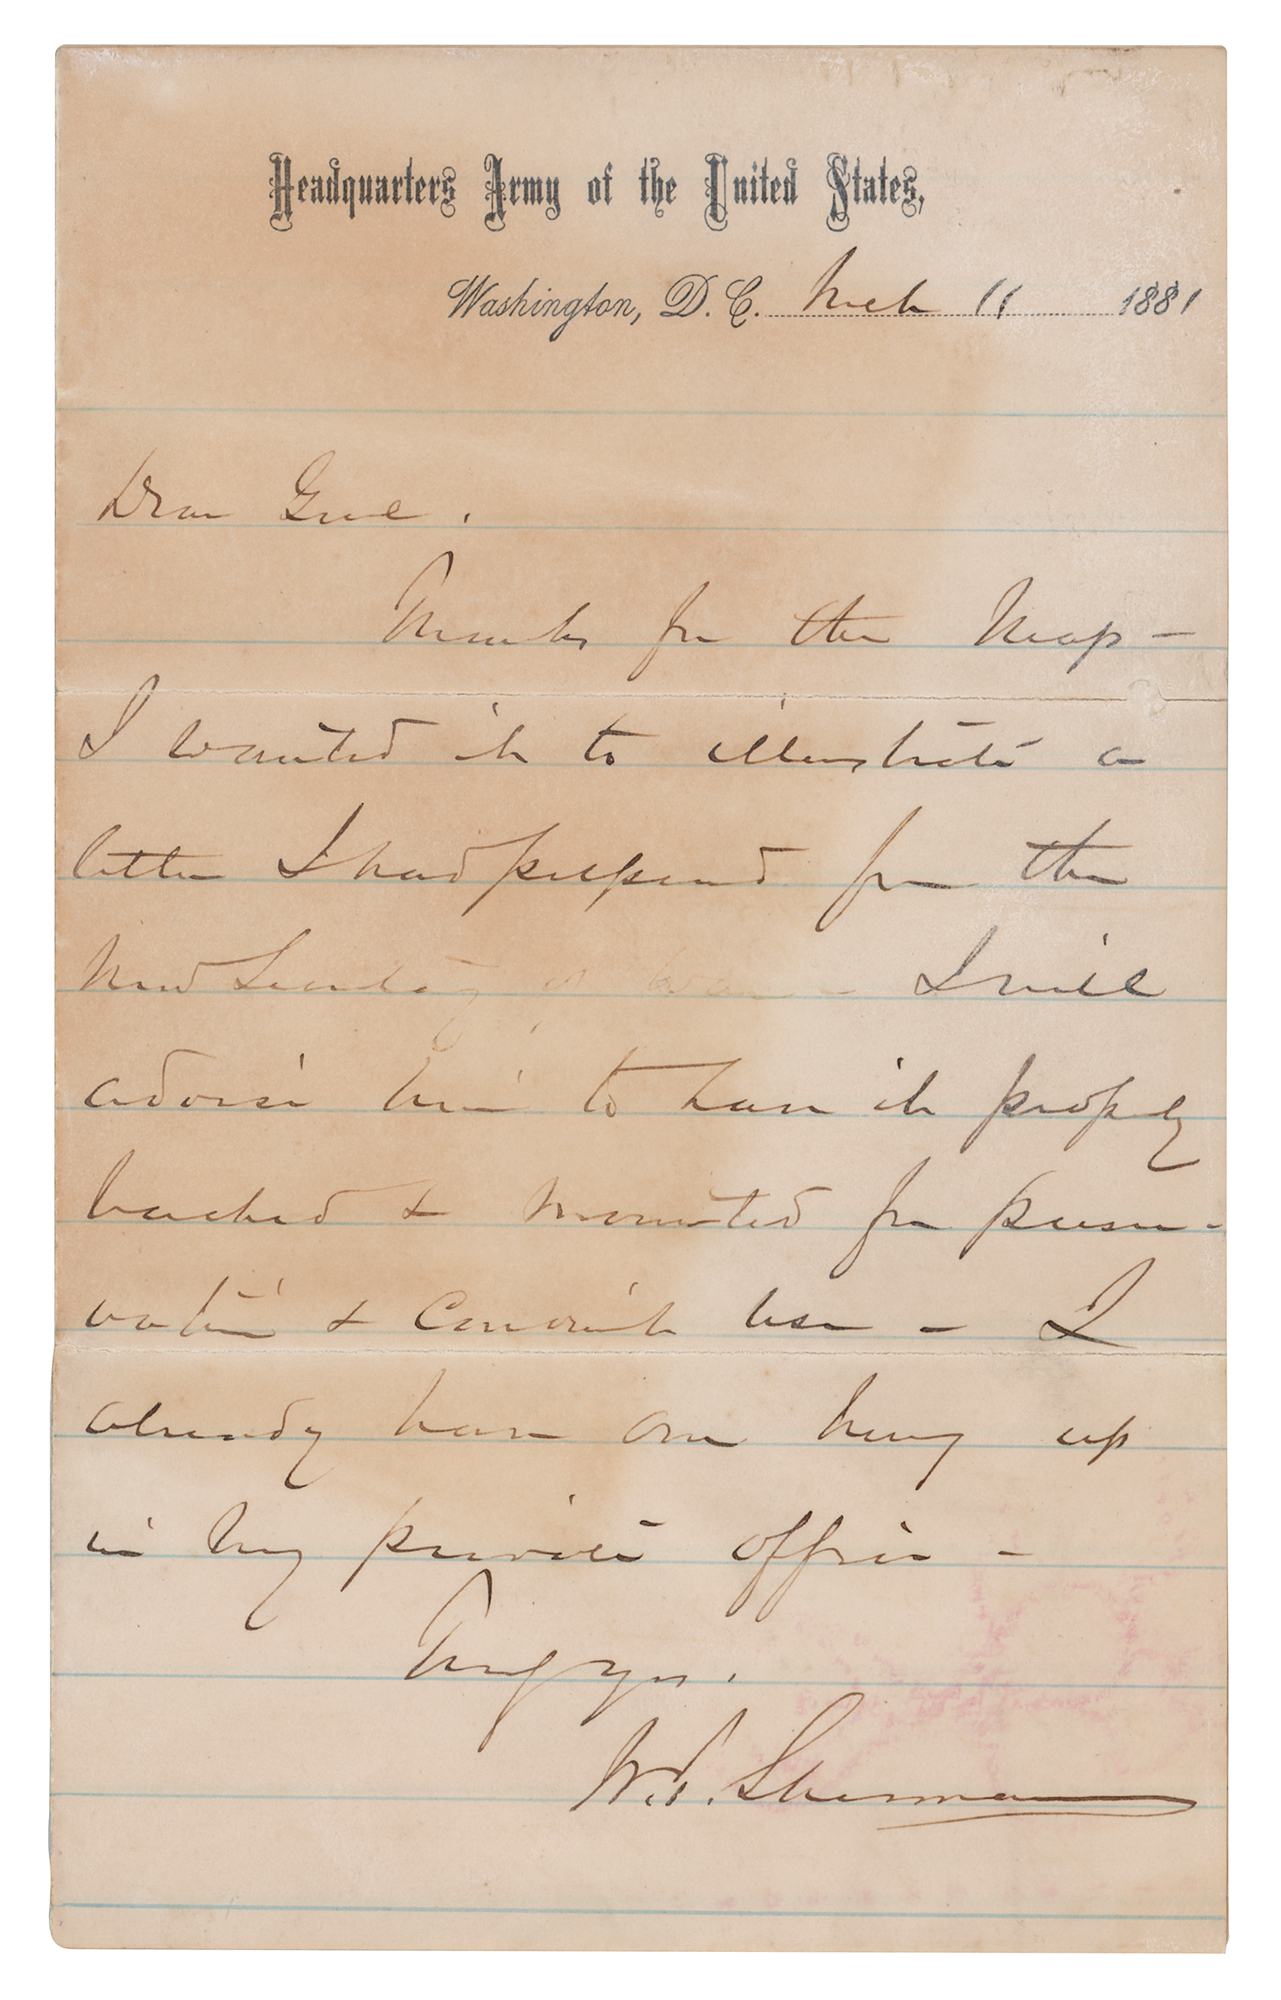 Headquarters Army of the United States,
Washington, D. C. Mch 11 1881
Dear
Thanks for the Map —
I wanted it to illustrate a
letter I had prepared for the
new Secretary of War — I will
advise him to have it properly
backed & mounted for preser-
vation & convenient use — I
already have one hung up
in my private office —
Truly yrs.
W.T. Sherman